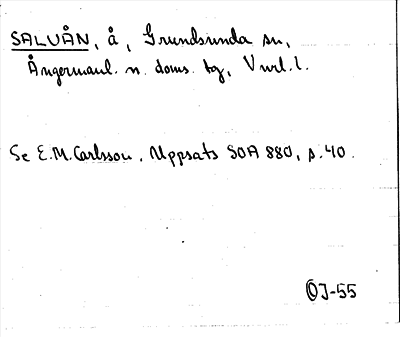 SALUÅN, å, Grundsunda sn,
Ångermanl. n. doms. tg, Vnrl. l.
Se E.M. Carlsson, Uppsats SOA 880, s. 40.
OJ-55